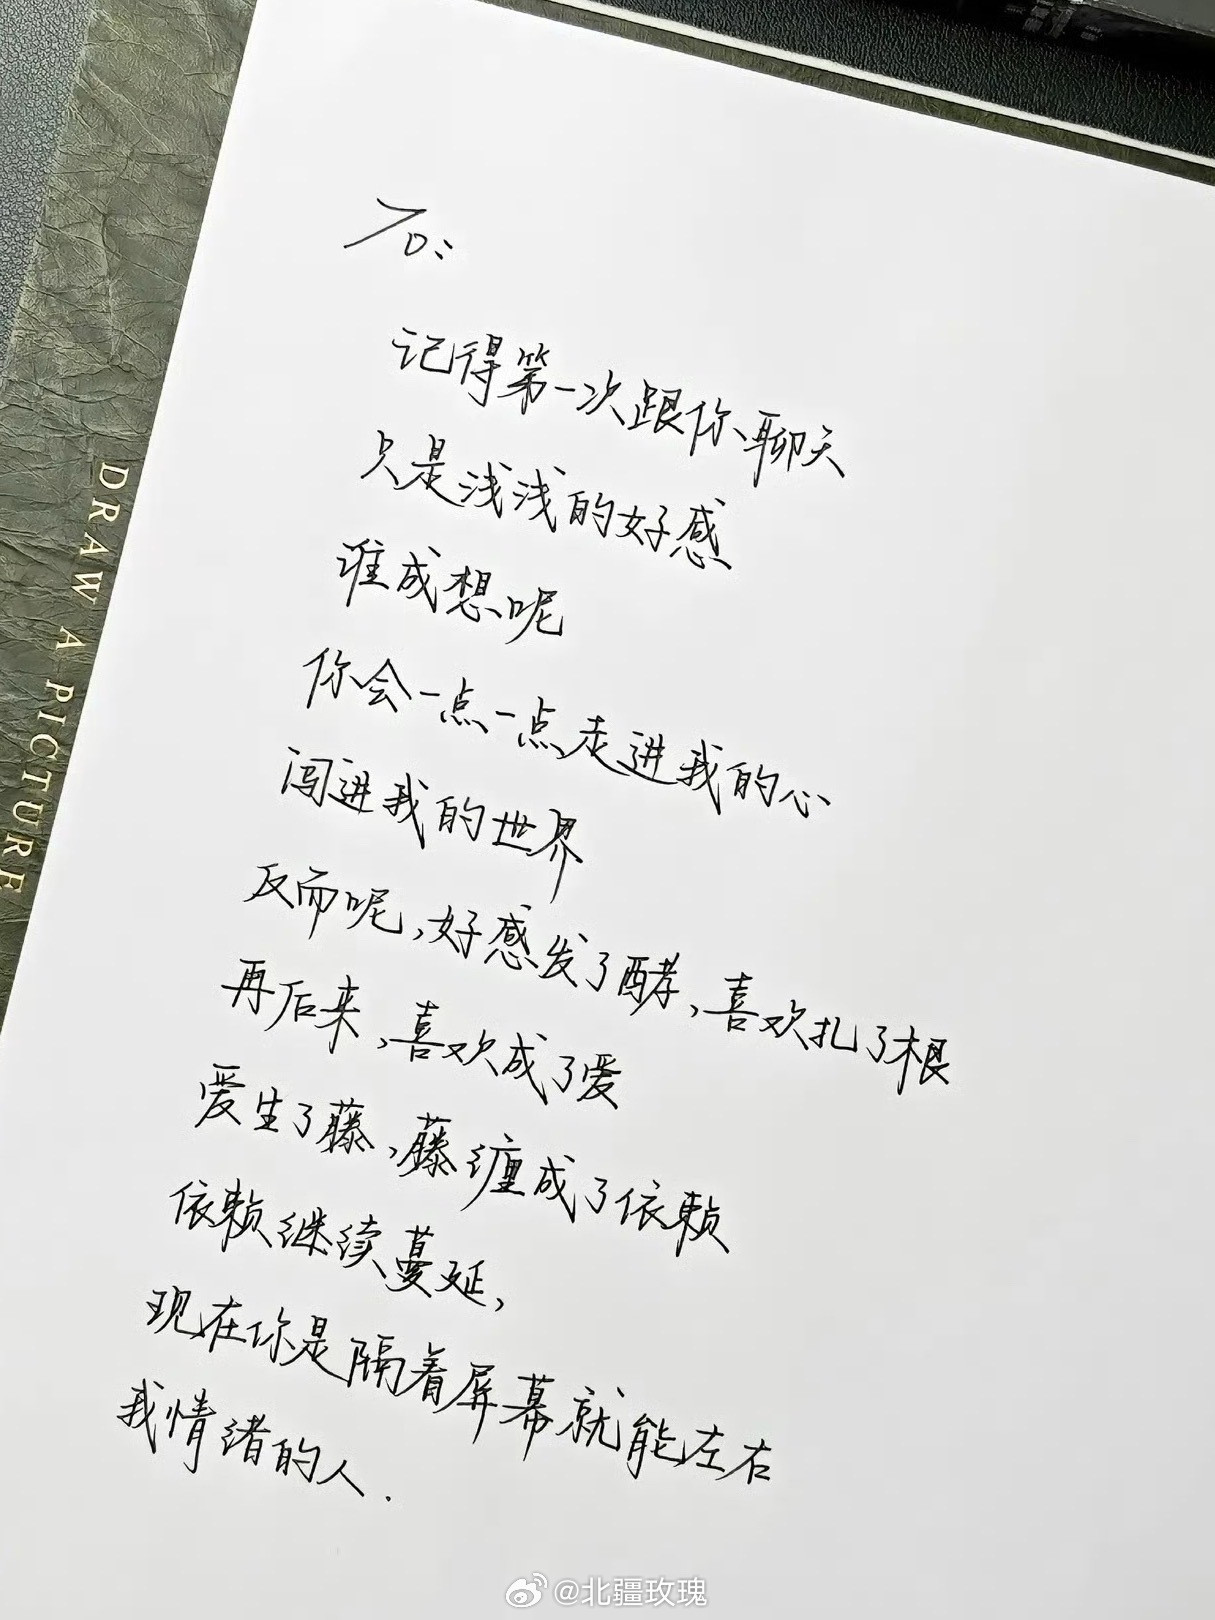 To:
记得第一次跟你聊天
只是浅浅的好感
谁成想呢
你会一点一点走进我的心
闯进我的世界
反而呢,好感发了酵,喜欢扎了根
再后来,喜欢成了爱
爱生了藤,藤缠成了依赖
依赖继续蔓延,
现在你是隔着屏幕就能左右
我情绪的人.
DRAW A PICTURE
@北疆玫瑰